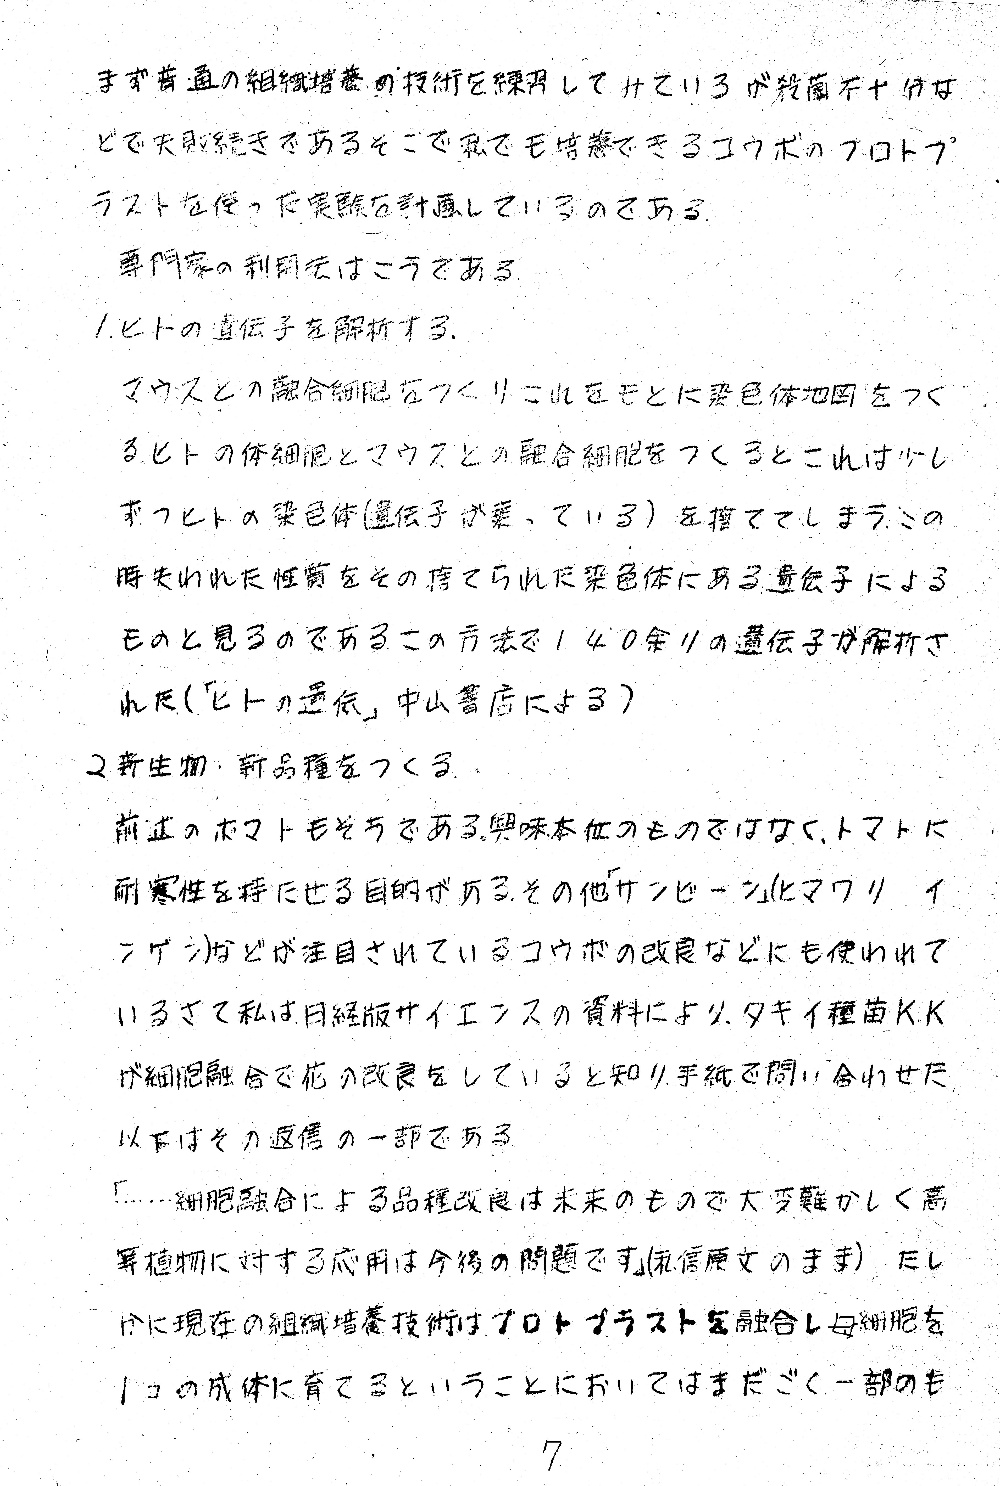 まず普通の組織培養の技術を練習してみているが殺菌不十分な
どで失敗続きであるそこで私でも培養できるコウボのプロトプ
ラストを使った実験を計画しているのである.
専門家の利用法はこうである.
1.ヒトの遺伝子を解析する.
マウスとの融合細胞をつくりこれをもとに染色体地図をつく
るヒトの体細胞とマウスとの融合細胞をつくるとこれは少し
ずつヒトの染色体(遺伝子が乗っている)を捨ててしまう.この
時失われた性質をその捨てられた染色体にある遺伝子による
ものと見るのであるこの方法で140余りの遺伝子が解析さ
れた(「ヒトの遺伝」中山書店による)
2新生物・新品種をつくる.
前述のポマトもそうである.興味本位のものではなく,トマトに
耐寒性を持たせる目的がある.その他「サンビーン」(ヒマワリ イ
ンゲン)などが注目されているコウボの改良などにも使われて
いるさて私は日経版サイエンスの資料により,タキイ種苗K.K
が細胞融合で花の改良をしていると知り手紙で問い合わせた
以下はその返信の一部である
「……細胞融合による品種改良は未来のもので大変難かしく高
等植物に対する応用は今後の問題です」(私信原文のまま) たし
かに現在の組織培養技術はプロトプラストを融合し母細胞を
1コの成体に育てるということにおいてはまだごく一部のも
7